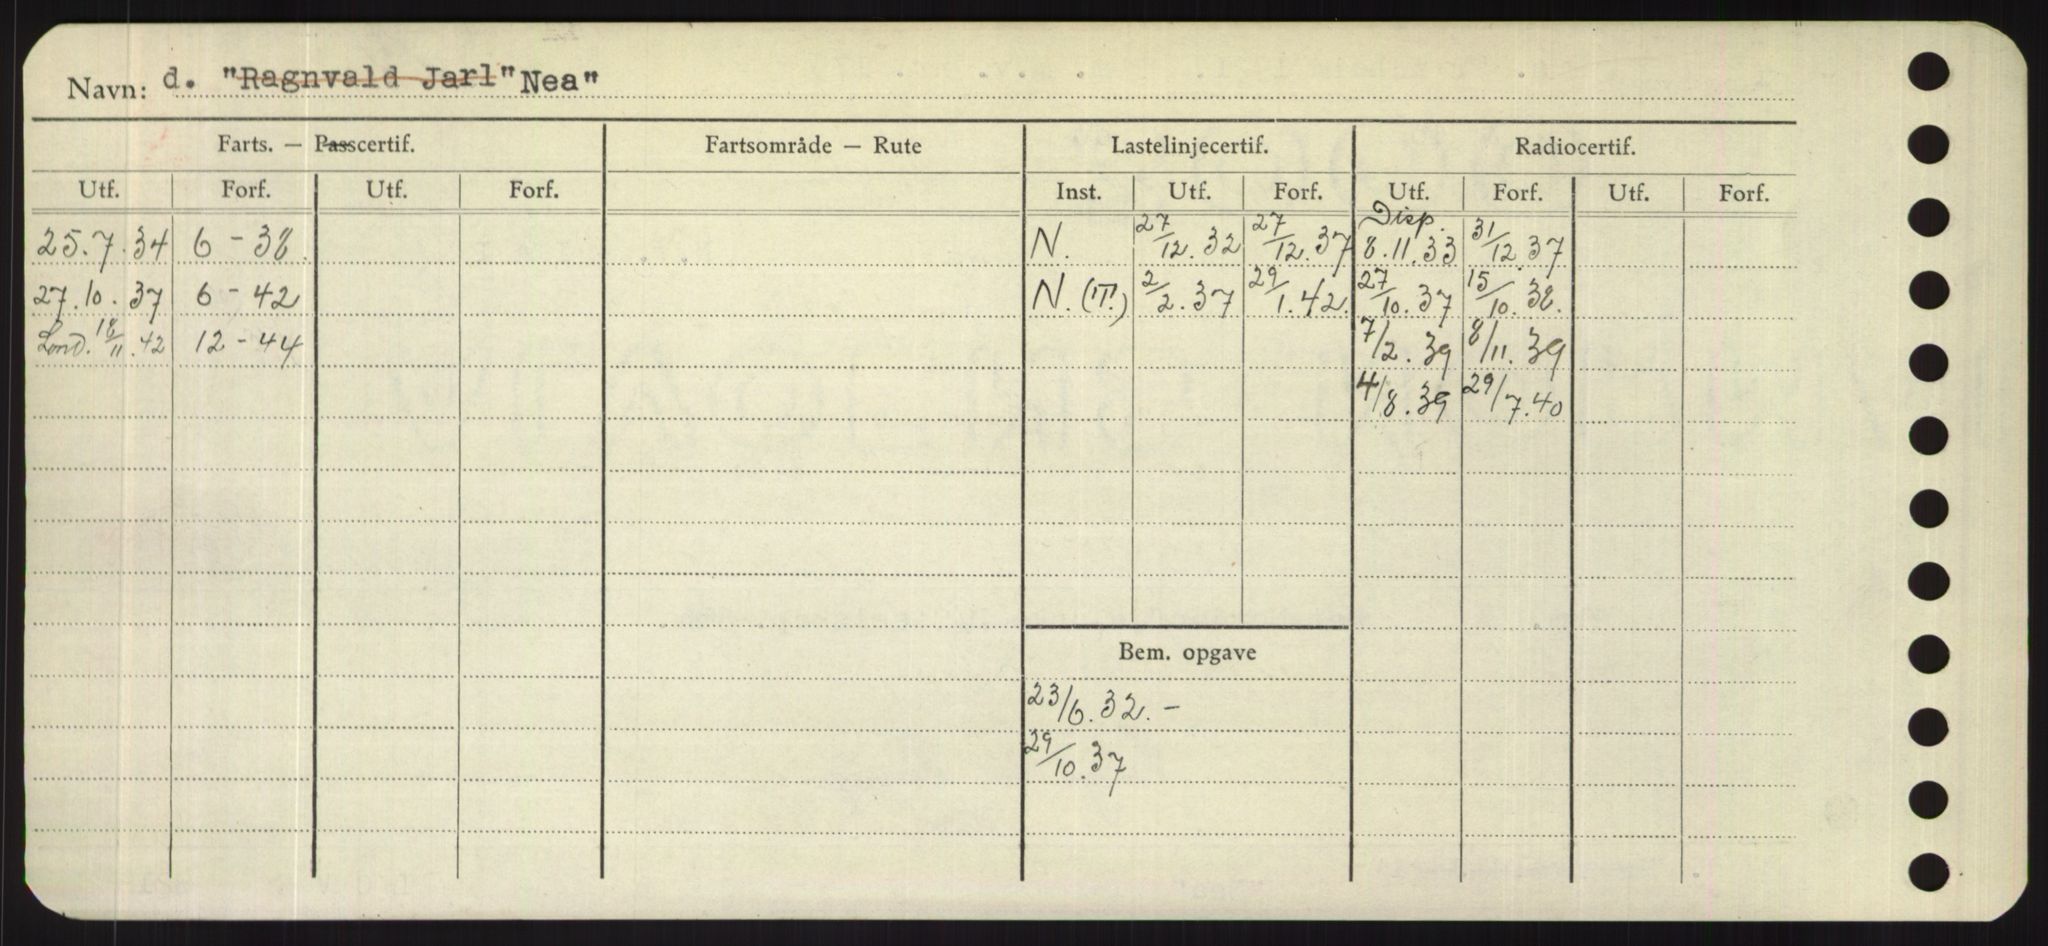 Navn: d. "Ragnvald Jarl" Nea"
Farts. — Passcertif. Fartsområde — Rute Lastelinjecertif. Radiocertif.
Utf. Forf. Utf. Forf. Inst. Utf. Forf. Utf. Forf. Utf. Forf.
Disp.
25.7.34 6 - 38 N. 27/12.32 27/12.37 8.11.33 31/12 37
27.10.37 6 - 42 N. (T.) 2/2.37 29/1.42. 27/10.37 15/10.38.
Lond. 18/11.42 12 - 44 7/2.39 8/11.39
4/8.39 29/7.40
Bem. opgave
23/6.32. -
29/10.37